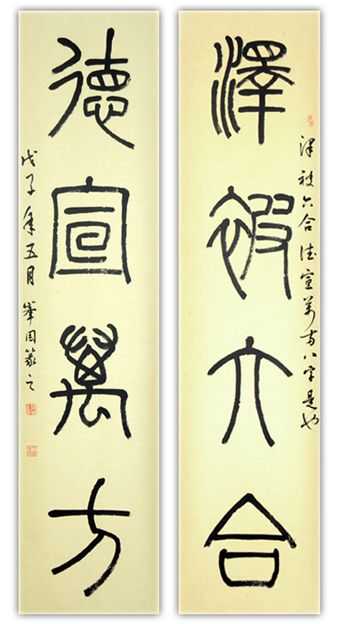 澤被六合德宣萬方八字是也
澤被六合
德宣萬方
戊子年五月篆之